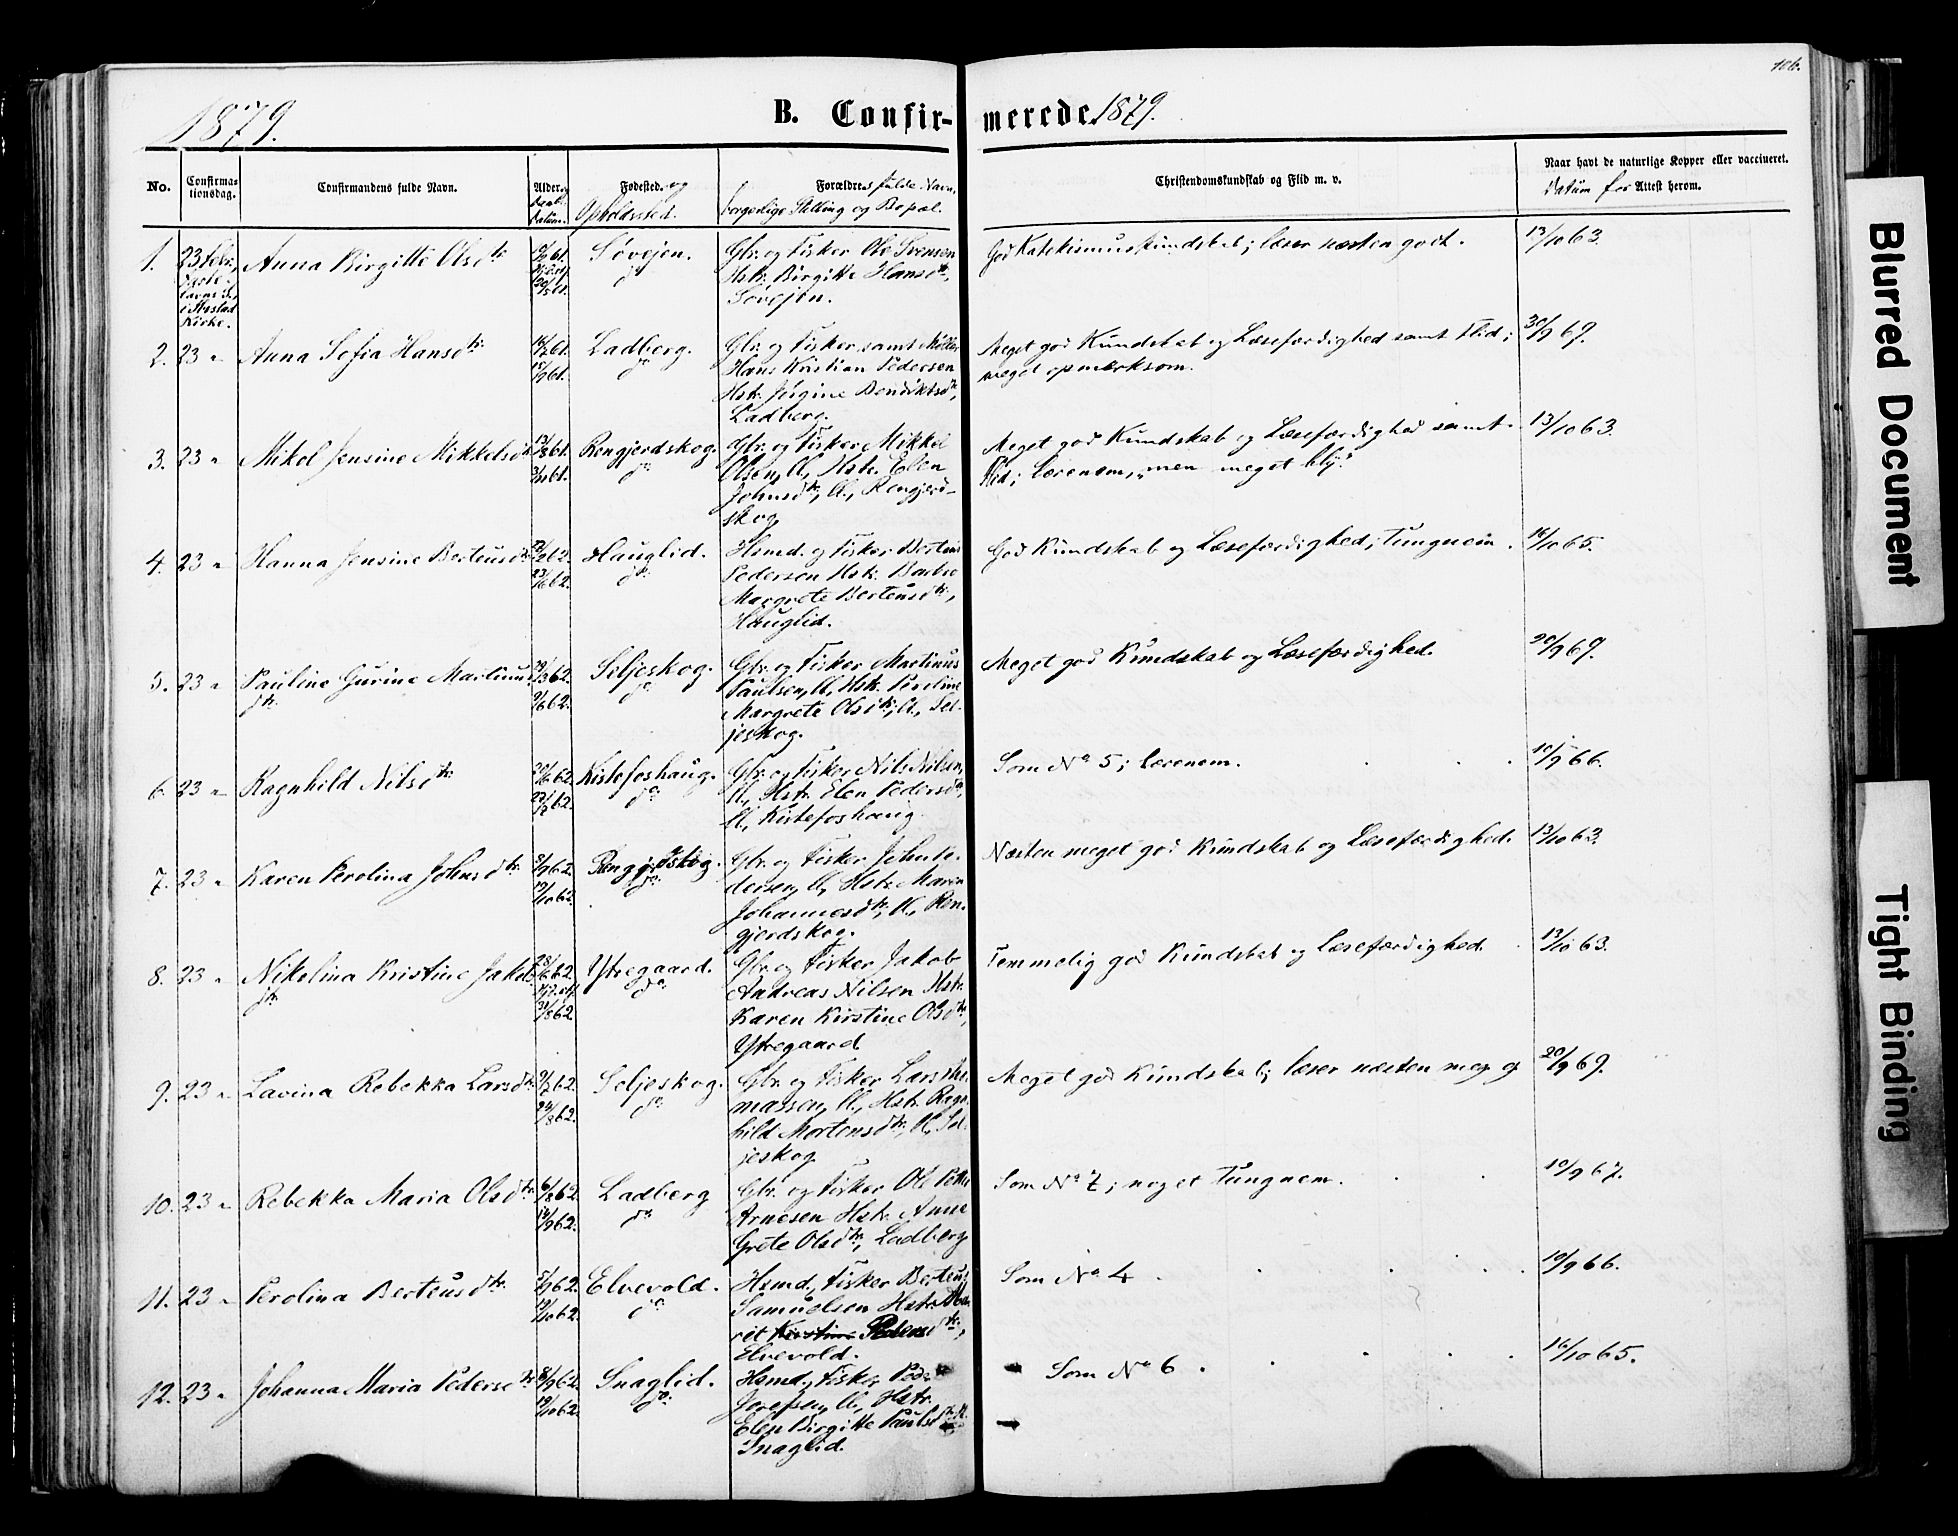 106.
1879.
B. Confir-
merede 1879.
No.
Confirma-
tionsdag.
Confirmandens fulde Navn.
Alder og
Daab.
Datum.
Fødested. og
Opholdssted.
Forældres fulde Navn,
borgerlige Stilling og Bopæl.
Christendomskundskab og Flid m. v.
Naar havt de naturlige Kopper eller vaccineret.
Datum for Attest herom.
1. 23 Febr., Anna Birgitte Olsdtr. Søvejen. do
Kirke.
Gbr. og Fisker Ole Svensen
Hstr. Birgitte Hansdtr.,
Søvejen.
God Katekismuskundskab; læser næsten godt.
13/10 63.
2. 23 " Anna Sofia Hansdtr. Ladberg. do
Gbr. og Fisker samt Møller
Hans Kristian Pedersen
Hstr. Jørgine Bendiktsdtr.,
Ladberg.
Meget god Kundskab og Læsefærdighed samt Flid;
meget opmærksom.
30/9 69.
3. 23 " Mikol Jensine Mikkelsdtr. 13/8 61. Rengjerdskog. do
Gbr. og Fisker Mikkel
Olsen, Hstr. Elen
Johnsdtr., Rengjerd-
skog.
Meget god Kundskab og Læsefærdighed samt
Flid; lærenem, men meget bly.
13/10 63.
4. 23 " Hanna Jensine Berteusdtr. Hauglid. do
Hsmd. og Fisker Berteus
Pedersen Hstr. Barbro
Margrete Berteusdtr.,
Hauglid.
God Kundskab og Læsefærdighed; tungnem.
16/10 65.
5. 23 " Pauline Gurine Martinus-
dtr. Seljeskog. do
Gbr. og Fisker Martinus
Paulsen, Hstr. Peroline
Margrete Olsdtr., Sel-
jeskog.
Meget god Kundskab og Læsefærdighed.
20/9 69.
6. 23 " Ragnhild Nilsdtr. Kistefoshaug. do
Gbr. og Fisker Nils Nilsen,
Hstr. Elen Pedersdtr,
Kistefoshaug.
Som No 5; lærenem.
10/9 66.
7. 23 " Karen Perolina Johnsdtr. 8/9 62. 19/10 62. Rengjerdskog. do
Gbr. og Fisker John Pe-
dersen, Hstr. Maren
Johannesdtr., Ren-
gjerdskog.
Næsten meget god Kundskab og Læsefærdighed.
13/10 63.
8. 23 " Nikolina Kristine Jakobs-
dtr. 28/6 62. 31/8 62. Ytregaard. do
Gbr. og Fisker Jakob
Andreas Nilsen Hstr.
Karen Kirstine Olsdtr.,
Ytregaard.
Temmelig god Kundskab og Læsefærdighed.
13/10 63.
9. 23 " Lavina Rebekka Larsdtr. 9/7 62. 24/8 62. Seljeskog. do
Gbr. og Fisker Lars Tho-
massen, Hstr. Ragn-
hild Mortensdtr., Sel-
jeskog
Meget god Kundskab; læser næsten meg. g.
20/9 69.
10. 23 " Rebekka Maria Olsdtr. 6/8 62. 14/9 62. Ladberg do
Gbr. og Fisker Ole Peter
Arnesen Hstr. Anne
Grete Olsdtr., Ladberg
Som No 7; noget tungnem.
10/9 67.
11. 23 " Perolina Berteusdtr. 5/9 62. 19/10 62. Elvevold. do
Hsmd., Fisker Berteus
Samuelsen Hstr. Ma-
rit Kirstine Pedersdtr.,
Elvevold.
Som No 4
10/9 66.
12. 23 " Johanna Maria Pedersdtr. 8/9 62. 19/10 62. Snaglid. do
Hsmd., Fisker Peder
Hstr.
Elen Birgitte Paulsdtr.
Snaglid.
Som No 6
16/10 65.
Blurred Document
Tight Binding